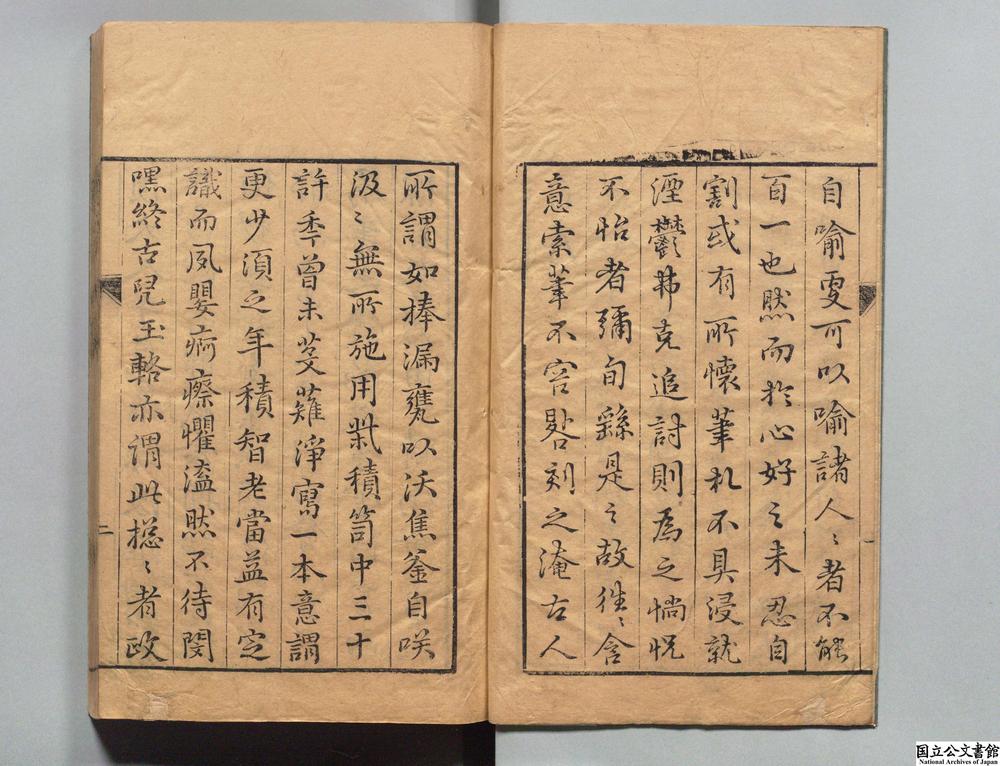 自喻更可以喻諸人〻者不能
百一也然而於心好之未忍自
割或有所懷筆札不具浸就
湮鬱弗克追討則爲之惝怳
不怡者彌旬繇是之故徃〻含
意索筆不容晷刻之淹古人
一
所謂如捧漏甕以沃焦釜自咲
汲〻無所施用積笥中三十
許秊曾未芟薙淨寫一本意謂
更少須之年積智老當益有定
識而夙嬰痾瘵懼溘然不待閔
嘿終古兒玉輅亦謂此揔〻者政
二
国立公文書館
National Archives of Japan